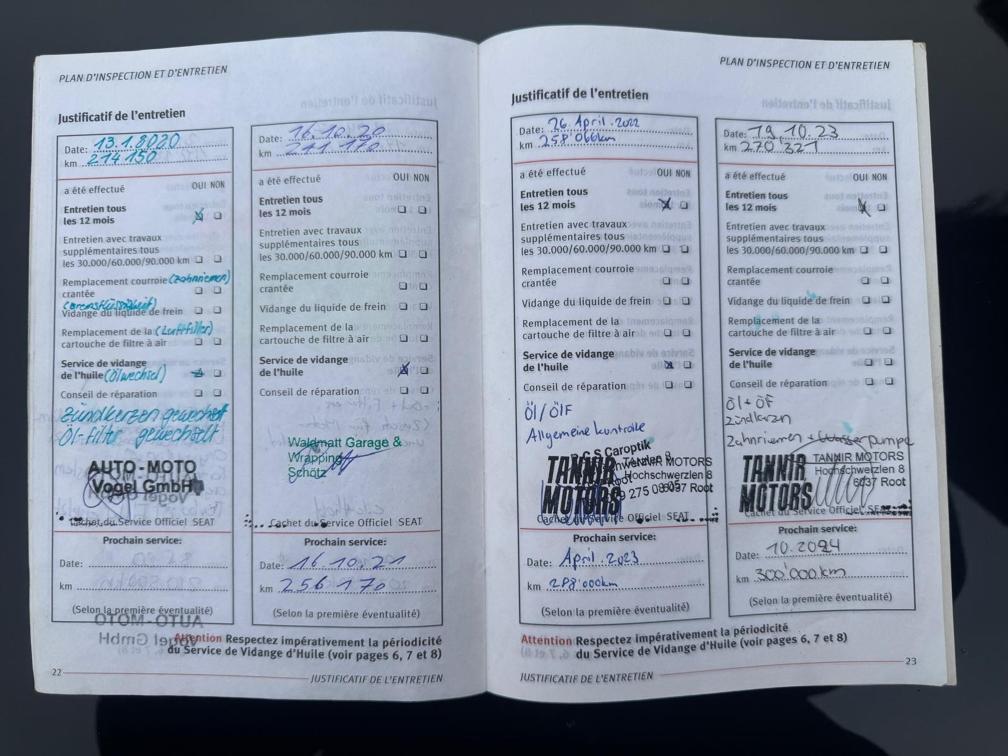 PLAN D'INSPECTION ET D'ENTRETIEN
Justificatif de l'entretien
Date: 13.1.8020
km 214 150
a été effectué OUI NON
Entretien tous
les 12 mois
Entretien avec travaux
supplémentaires tous
les 30.000/60.000/90.000 km
Remplacement courroie (Zahnriemen)
crantée
(Bremsflüssigkeit)
Vidange du liquide de frein
Remplacement de la (Luftfilter)
cartouche de filtre à air
Service de vidange
de l'huile (Ölwechsel)
Conseil de réparation
Zündkerzen gewechselt
Öl-filter gewechselt
AUTO-MOTO
Vogel GmbH
Cachet du Service Officiel SEAT
Prochain service:
Date:
km
(Selon la première éventualité)
Date: 16.10.20
km 241 170
a été effectué OUI NON
Entretien tous
les 12 mois
Entretien avec travaux
supplémentaires tous
les 30.000/60.000/90.000 km
Remplacement courroie
crantée
Vidange du liquide de frein
Remplacement de la
cartouche de filtre à air
Service de vidange
de l'huile
Conseil de réparation
Waldmatt Garage &
Wrapping
Schötz
Cachet du Service Officiel SEAT
Prochain service:
Date: 16.10.21
km 256 170
(Selon la première éventualité)
AUTO-MOTO
Vogel GmbH
Attention Respectez impérativement la périodicité
du Service de Vidange d'Huile (voir pages 6, 7 et 8)
22
JUSTIFICATIF DE L'ENTRETIEN
PLAN D'INSPECTION ET D'ENTRETIEN
Justificatif de l'entretien
Date: 26. April. 2022
km 258'066km
a été effectué OUI NON
Entretien tous
les 12 mois
Entretien avec travaux
supplémentaires tous
les 30.000/60.000/90.000 km
Remplacement courroie
crantée
Vidange du liquide de frein
Remplacement de la
cartouche de filtre à air
Service de vidange
de l'huile
Conseil de réparation
Öl/ÖlF
Allgemeine kontrolle
Caroptik
TANNIR
MOTORS
TANNIR MOTORS
Hochschwerzlen 8
6037 Root
Cachet du Service Officiel SEAT
Prochain service:
Date: April. 2023
km 288'000km
(Selon la première éventualité)
Date: 19.10.23
km 270'321
a été effectué OUI NON
Entretien tous
les 12 mois
Entretien avec travaux
supplémentaires tous
les 30.000/60.000/90.000 km
Remplacement courroie
crantée
Vidange du liquide de frein
Remplacement de la
cartouche de filtre à air
Service de vidange
de l'huile
Conseil de réparation
Öl + ÖF
Zündkerzen
Zahnriemen + Wasserpumpe
TANNIR
MOTORS
TANNIR MOTORS
Hochschwerzlen 8
6037 Root
Cachet du Service Officiel SEAT
Prochain service:
Date: 10.2024
km 300'000km
(Selon la première éventualité)
Attention Respectez impérativement la périodicité
du Service de Vidange d'Huile (voir pages 6, 7 et 8)
JUSTIFICATIF DE L'ENTRETIEN
23